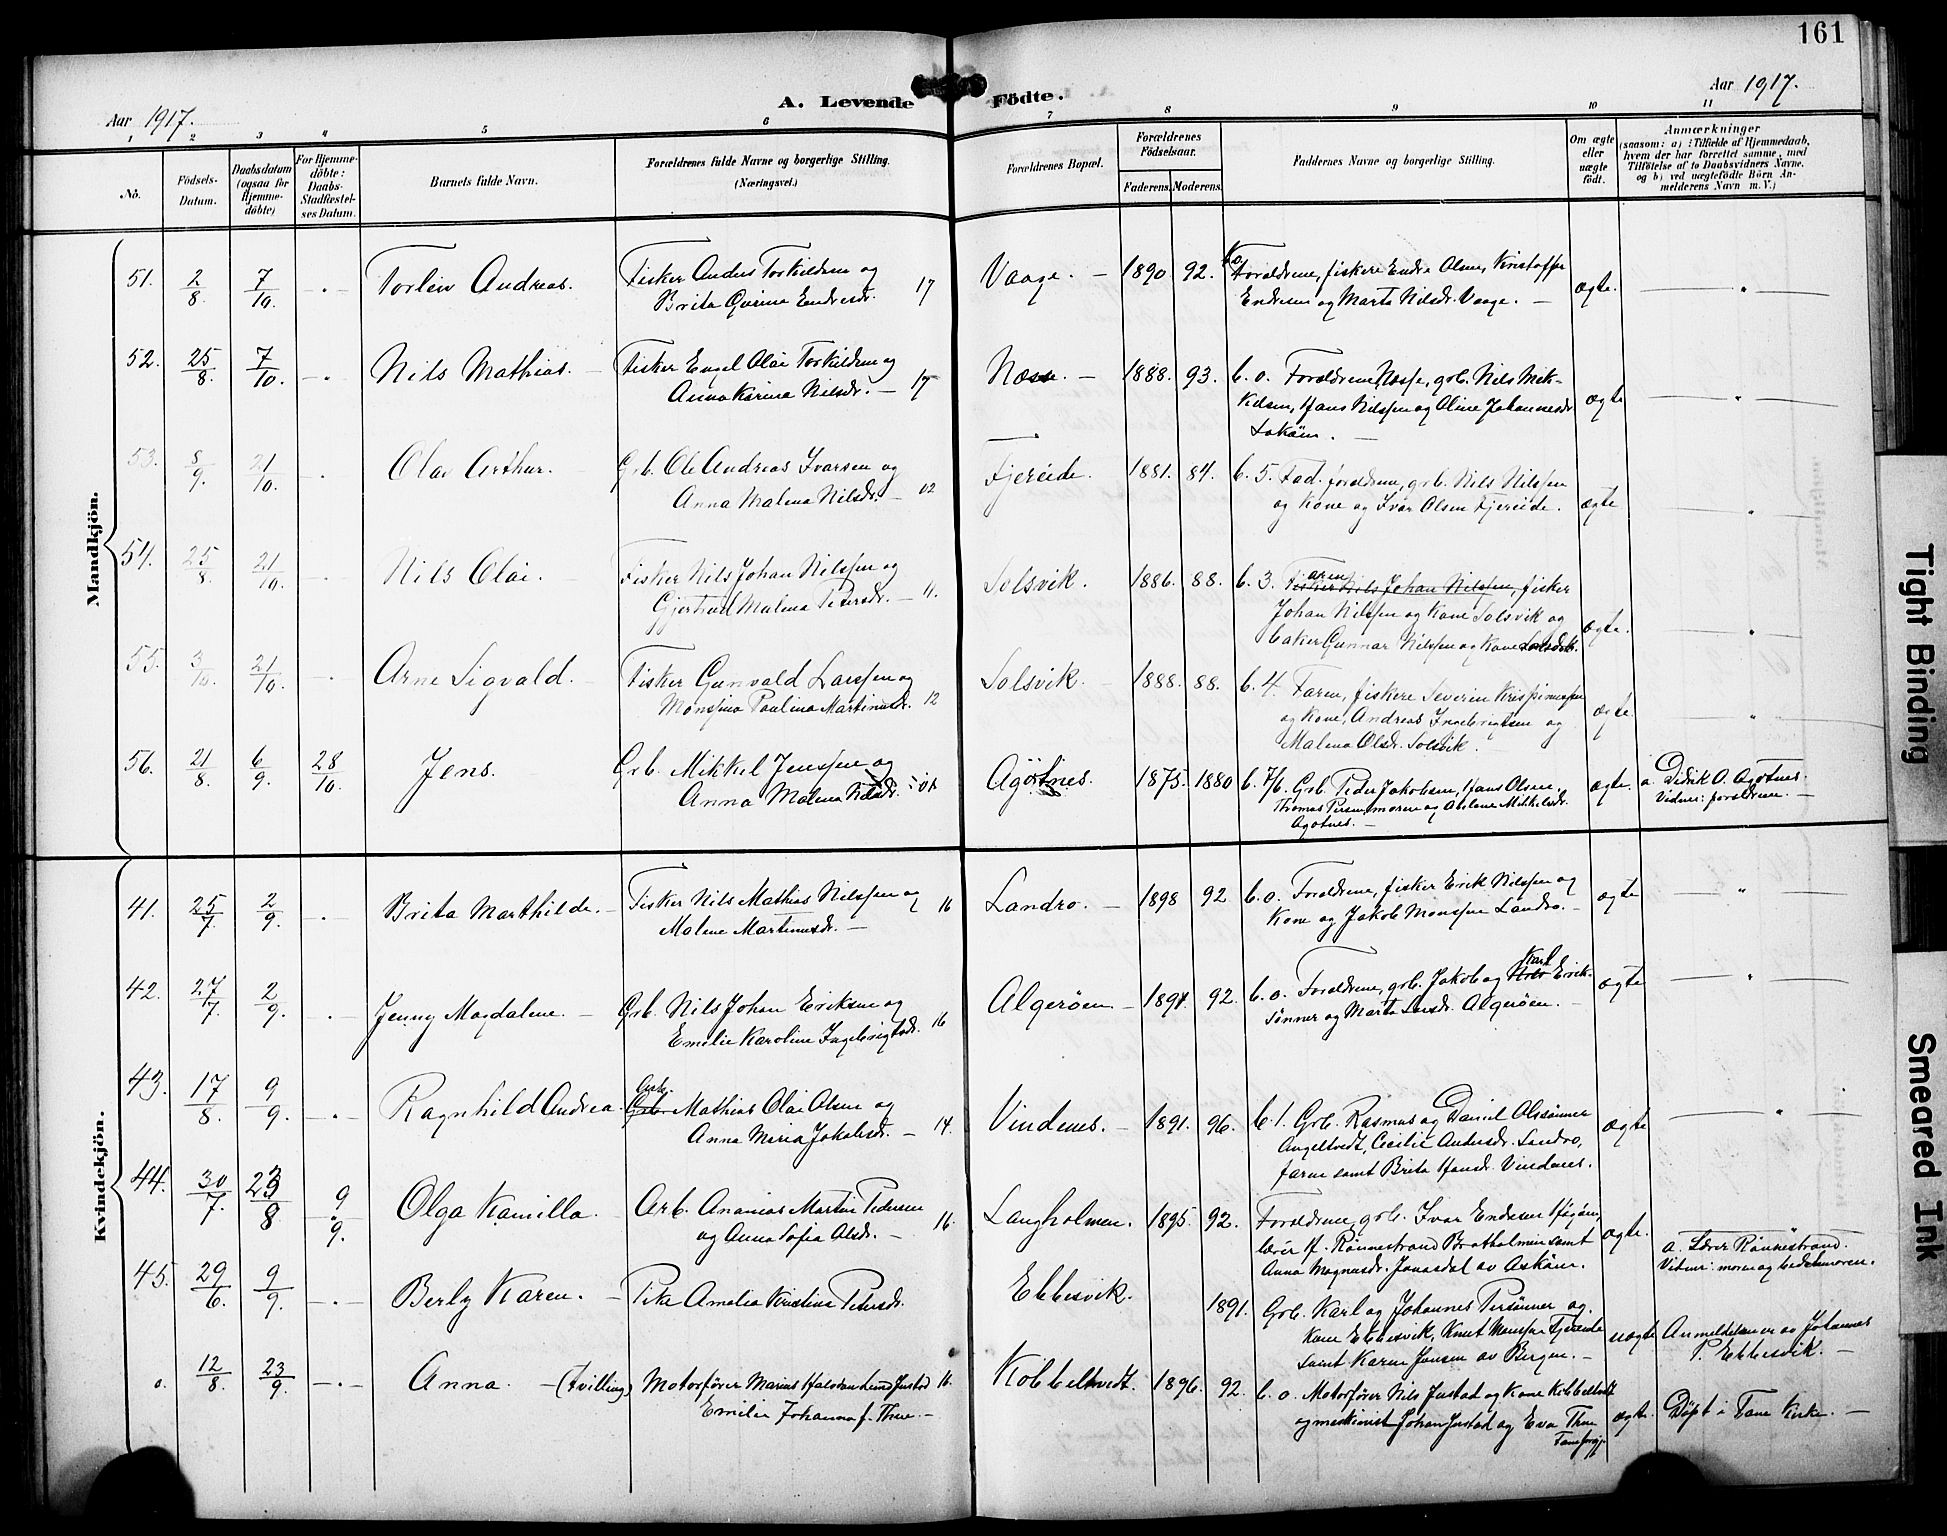 161
Aar 1917.
A. Levende Födte.
Aar 1917.
1 2 3 4 5 6 7 8 9 10 11
No.
Födsels-Datum.
Daabsdatum (ogsaa for Hjemme-döbte)
For Hjemme-döbte: Daabs-Stadfæstel-ses Datum.
Barnets fulde Navn.
Forældrenes fulde Navne og borgerlige Stilling. (Næringsvei.)
Forældrenes Bopæl.
Forældrenes Födselsaar.
Faderens. Moderens.
Faddernes Navne og borgerlige Stilling.
Om ægte eller uægte födt.
Anmærkninger
(saasom: a) i Tilfælde af Hjemmedaab, hvem der har forrettet samme, med Tilföielse af to Daabsvidners Navne, og b) ved uægtefödte Börn An-melderens Navn m. V.)
Mandkjön.
51. 2/8 7/10. Andreas. Fisker Anders Torkildsen og 17 Vaage. 1890 92. Forældrene, fiskere Endre Olsen, Kristoffer ægte.
Brita Gurine Endresdr. Endresen og Marta Nilsdr. Vaage.
52. 25/8. 7/10. Nils Mathias. Fisker Engel Olai Torkildsen og 17 Næsse. 1888. 93. b. o. Forældrene Næsse, grb. Nils Mik- ægte
Anna Karina Nilsdr. kelsen, Hans Nilssen og Oline Johannesdr.
53. 8/9. 21/10. Olav Arthur. Grb. Ole Andreas Ivarsen og 02 Fjereide. 1881. 84. b. 5. Fad. forældrene, grb. Nils Nilssen ægte
Anna Malena Nilsdr. og Kone og Ivar Olsen Fjereide.
54. 25/8. 21/10. Nils Olai. Fisker Nils Johan Nilssen og 11. Solsvik. 1886. 88. b. 3. Faren, Fisker Nils Johan Nilssen, fisker
Gjertrud Malena Pedersdr. Johan Nilssen og Kone Solsvik og ægte.
baker Gunnar Nilssen og Kone Solsvik.
55. 3/10. 21/10. Arne Sigvald. Fisker Gunvald Larssen og 12 Solsvik. 1888. 88. b. 4. Faren, fiskere Severin
Monsina Paulina Martinusdr. og Kone, Andreas Ingebrigtsen og ægte.
Malena Olsdr. Solsvik.
56. 21/8. 6/9. 28/10. Jens. Grb. Mikkel Jenssen og Agotnes. 1875. 1880 b. 7/6. Grb. Peder Jakobsen, Hans Olsen, ægte. a. Didrik A. Agotnes.
Anna Malena Nilsdr. 01 Thomas Persen, moren og Abelone Mikkelsdr. Vidner: forældrene.
Agotnes.
Kvindekjön.
41. 25/7. 2/9. Brita Marthilde. Fisker Nils Mathias Nilssen og 16 Landro. 1898 92 b. o. Forældrene, fisker Erik Nilssen og ægte
Malene Martinusdr. Kone og Jakob Monssen Landro.
42. 27/7. 2/9. Jenny Magdalene. Grb. Nils Johan Eriksen og 16 Algerøen 1894. 92. b. o. Forældrene, grb. Jakob og Karl Erik- ægte
Emelie Karoline Ingebrigtsdr. sønner og Marta Larsdr. Algerøen.
43. 17/8. 9/9. Ragnhild Andrea. Arb. Mathias Olai Olsen og 14. Vindenes. 1891. 96. b. 1. Grb. Rasmus og Daniel Olssønner ægte
Anna Maria Jakobsdr. Angeltvedt, Cecilie Andersdr. Landro,
faren samt Brita Hansdr. Vindenes.
44. 30/7. 23/8 9/9. Olga Kamilla. Arb. Ananias Martin Pedersen 16. Langholmen. 1895. 92. Forældrene, grb. Ivar Endresen
og Anna Sofia Olsdr. lærer H. Rönnestrand Bratholmen samt ægte. a. Lærer Rönnestrand.
Anna Magnusdr. Jonasdal av Askøen. Vidner: moren og bedstemoren.
45. 29/6. 9/9. Berly Karen. Pike Amalia Kristina Pedersdr. Ebbesvik. 1891. Grb. Karl og Johannes Persønner og
Kone Ebbesvik, Knut Monssen Fjereide uægte Anmeldelsen er av Johannes
samt Karen Jensen av Bergen. P. Ebbesvik.
o. 12/8. 23/9. Anna. (Tvilling) Motorfører Marius Halstenlund Justad 16. Kobbeltvedt. 1896. 92. b. o. Motorfører Nils Justad og Kone Kobbeltvedt
Emilie Johanna f. Thue. og maskinist Johan Justad og Eva Thue ægte. Døpt i Fane Kirke.
Tight Binding
Smeared Ink